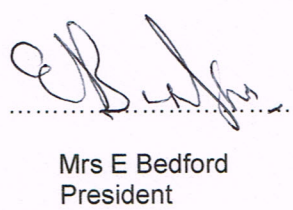 Mrs E Bedford
President